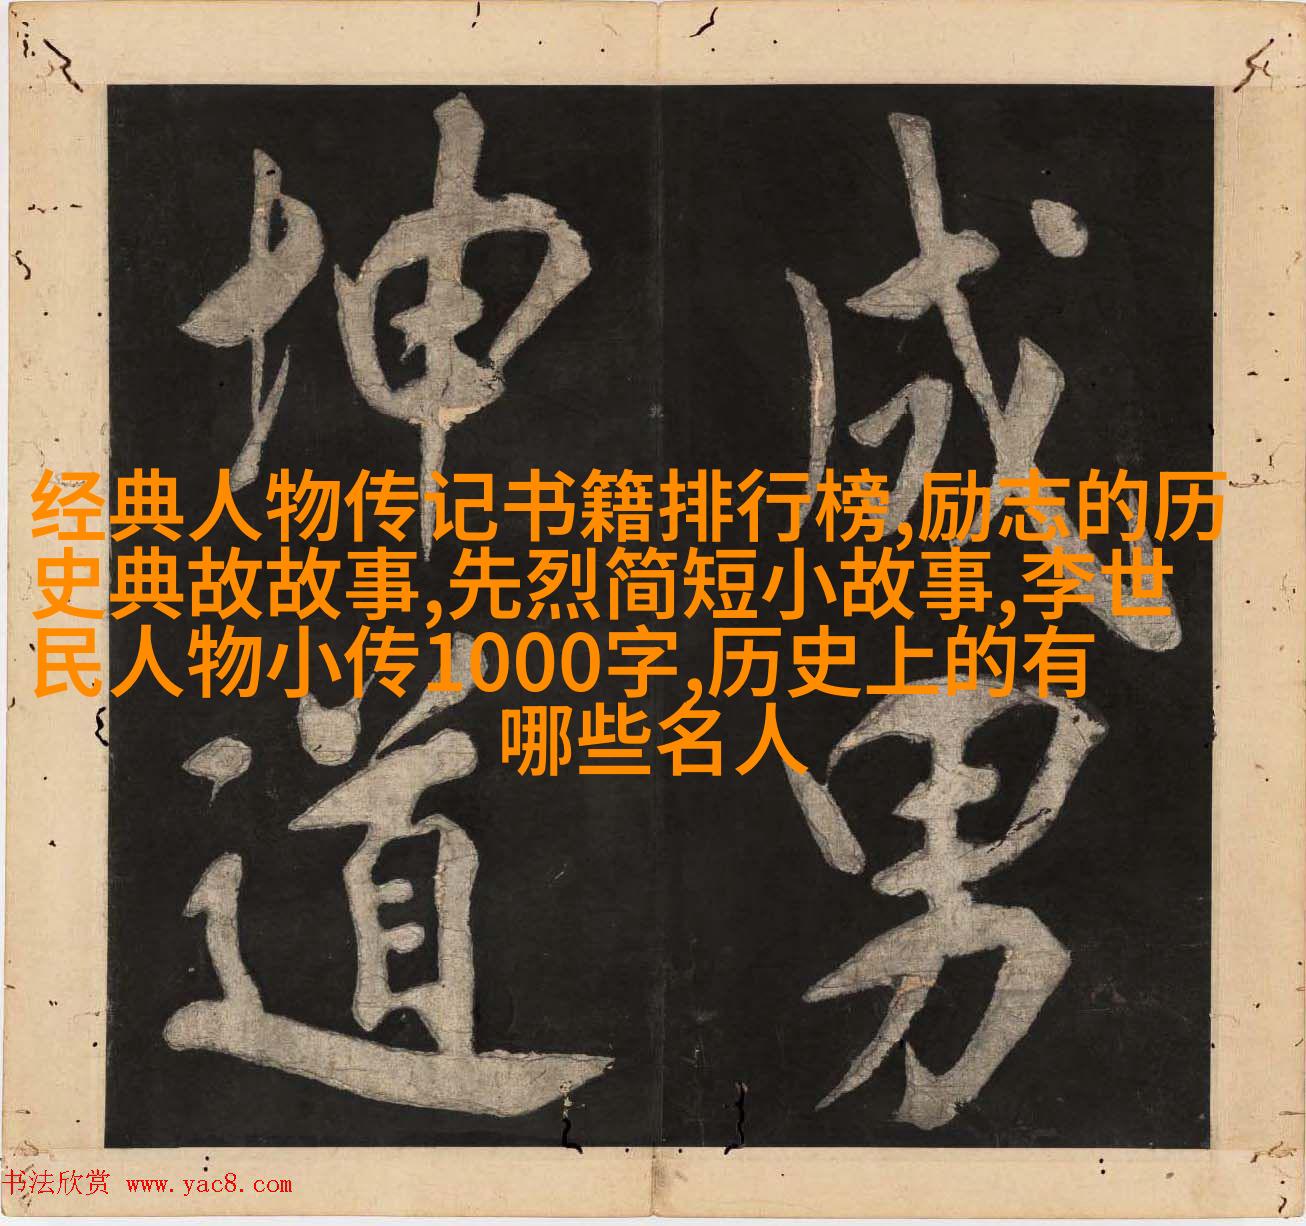 成男
坤道
经典人物传记书籍排行榜,励志的历
史典故故事,先烈简短小故事,李世
民人物小传1000字,历史上的有
哪些名人
书法欣赏 www.yac8.com